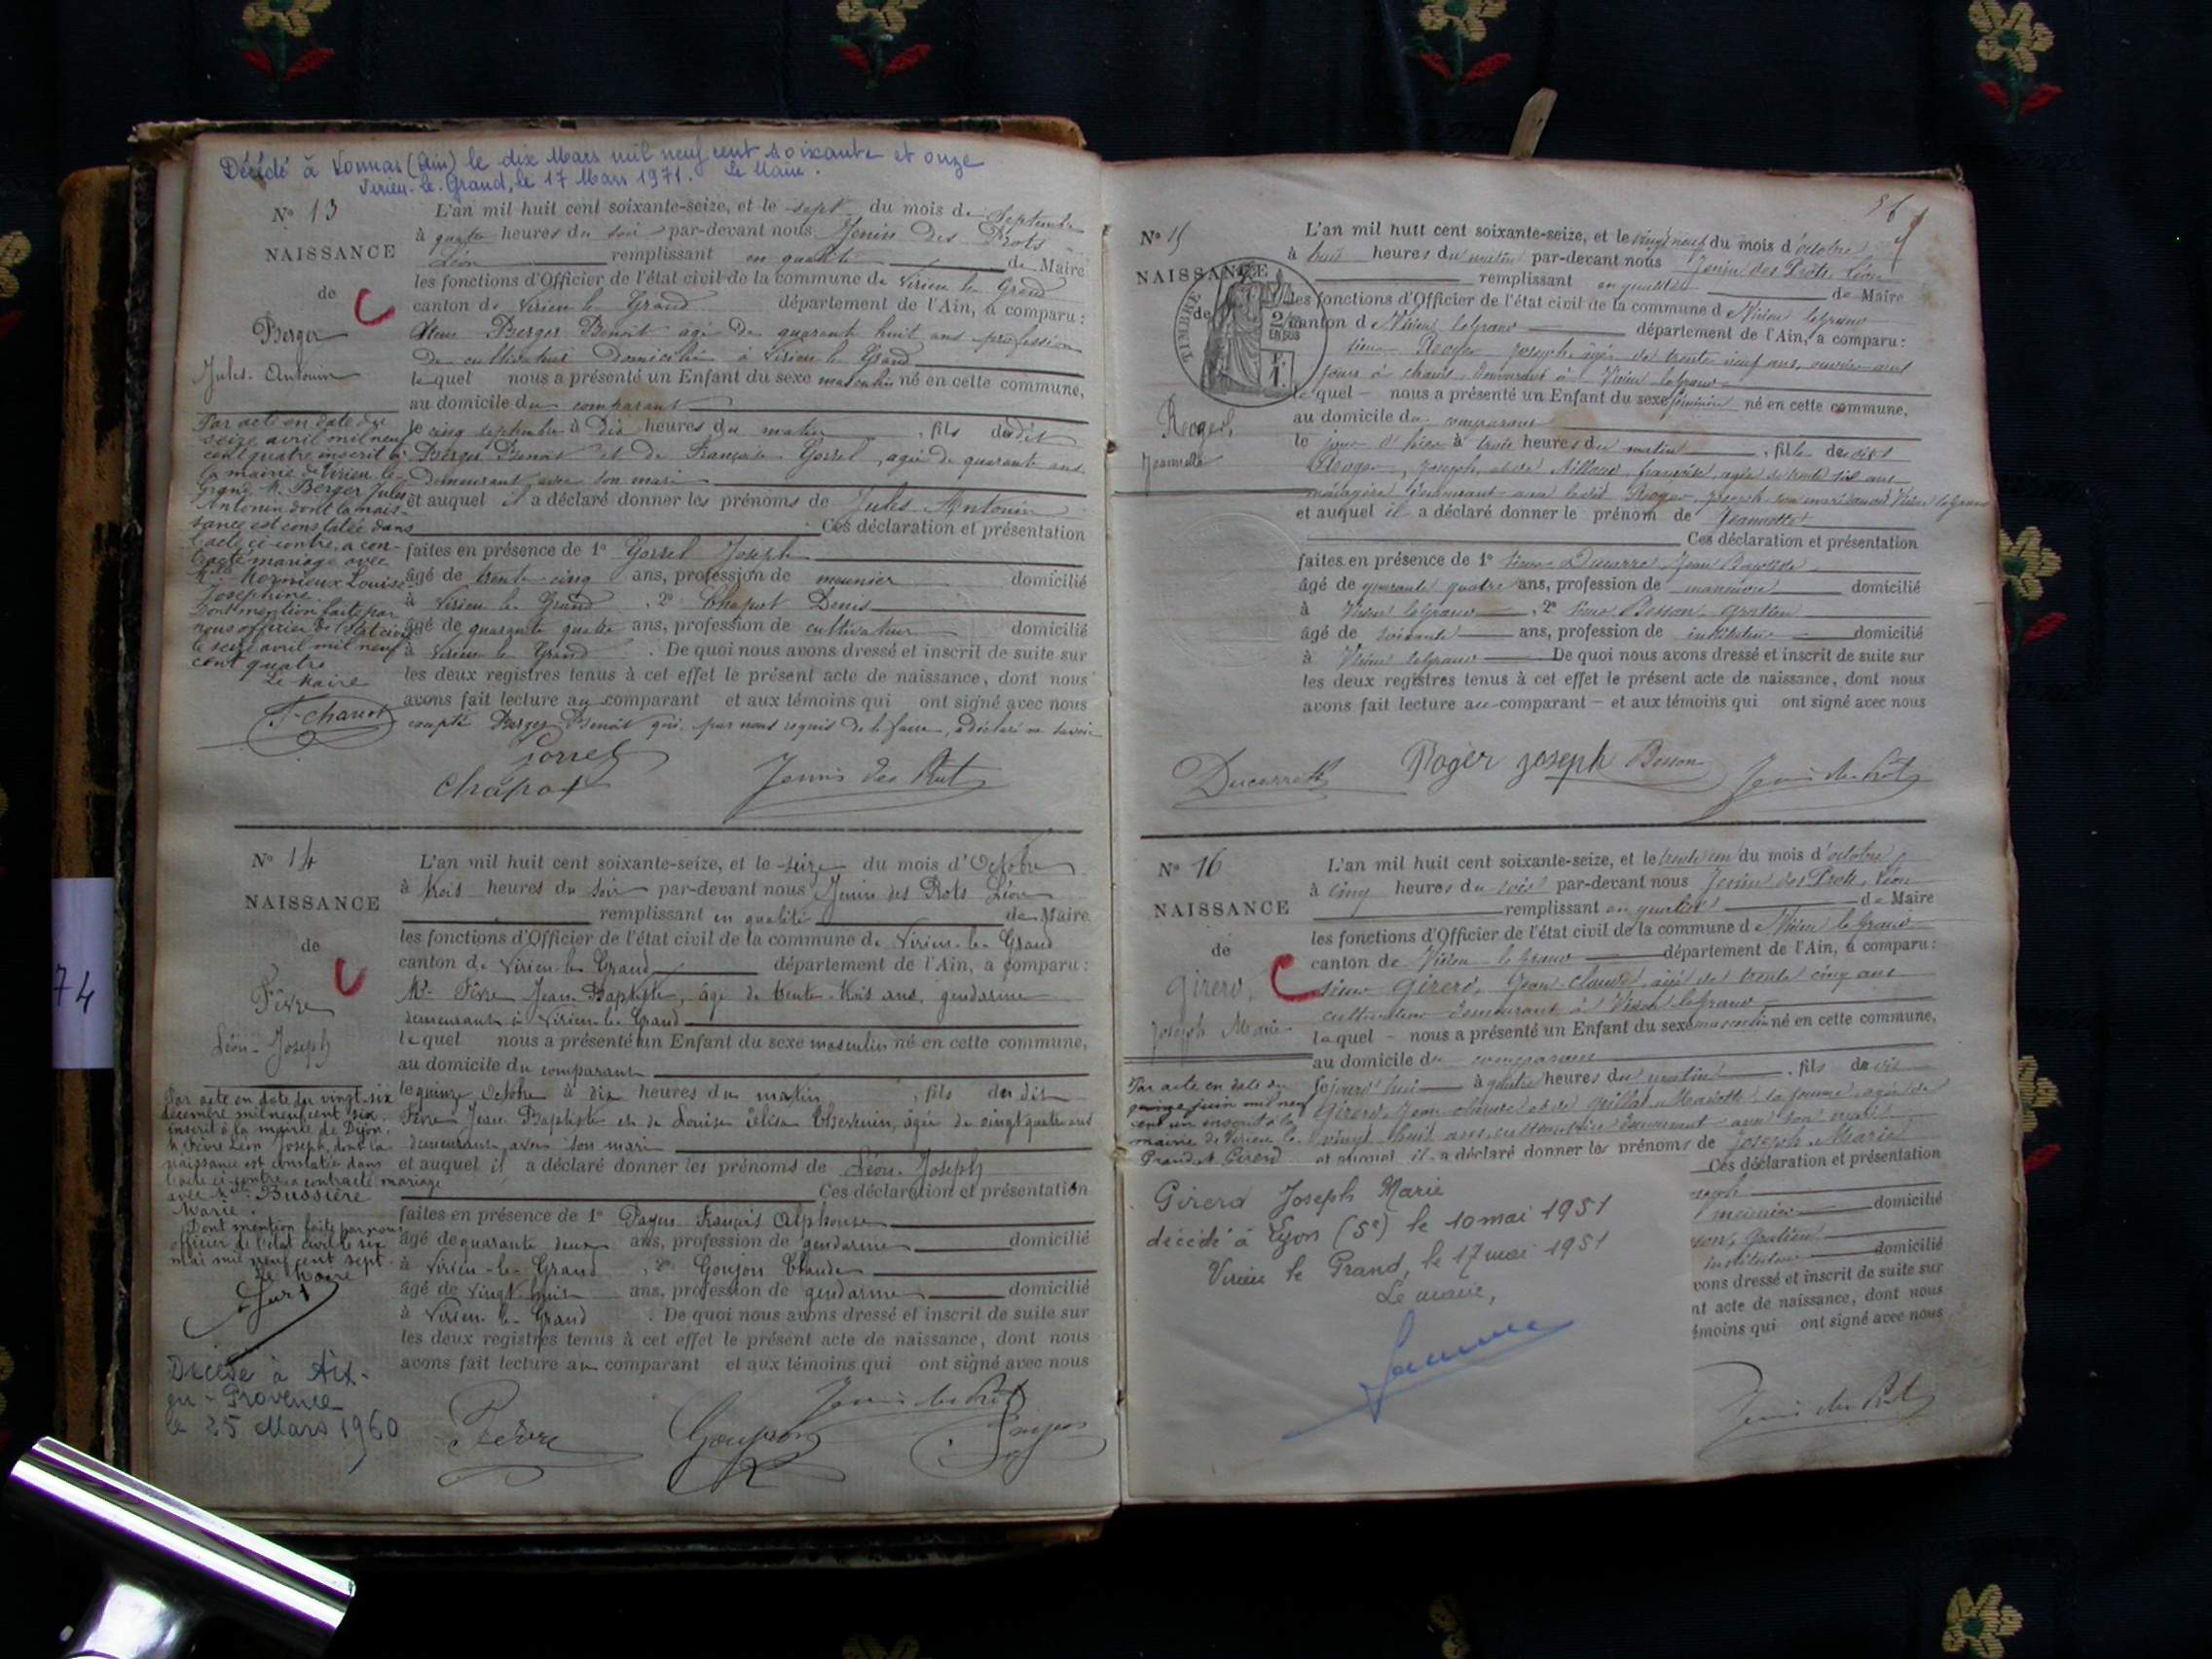 Décédé à Vonnas (Ain) le dix Mars mil neuf cent soixante et onze
Virieu-le-Grand, le 17 Mars 1971. Le Maire.
N° 13
NAISSANCE
de
Berger
Jules-Antonin
L'an mil huit cent soixante-seize, et le sept du mois de Septembre
à quatre heures du soir par-devant nous Jenin des Prots
Léon remplissant en qualité de Maire
les fonctions d'Officier de l'état civil de la commune de Virieu le Grand
canton de Virieu le Grand département de l'Ain, a comparu:
sieur Berger Benoît âgé de quarante huit ans profession
de cultivateur domicilié à Virieu le Grand
lequel nous a présenté un Enfant du sexe masculin né en cette commune,
au domicile du comparant
le cinq septembre à dix heures du matin, fils du dit
Berger Benoît et de Françoise Gorrel, âgée de quarante ans
demeurant avec son mari
et auquel il a déclaré donner les prénoms de Jules Antonin
Ces déclaration et présentation
faites en présence de 1° Gorrel Joseph
âgé de trente-cinq ans, profession de meunier domicilié
à Virieu le Grand, 2° Chapot Denis
âgé de quarante quatre ans, profession de cultivateur domicilié
à Virieu le Grand. De quoi nous avons dressé et inscrit de suite sur
les deux registres tenus à cet effet le présent acte de naissance, dont nous
avons fait lecture au comparant et aux témoins qui ont signé avec nous
excepté Berger Benoît qui, par nous requis de le faire, a déclaré ne savoir
Gorrel
Chapot Jenin des Prots
Par acte en date du
seize avril mil neuf
cent quatre inscrit à
la mairie de Virieu le-
Grand M. Berger Jules
Antonin dont la nais-
sance est constatée dans
l'acte ci-contre, a con-
tracté mariage avec
Mlle Louise
Joséphine.
Dont mention faite par
nous officier de l'état civil
le seize avril mil neuf
cent quatre
Le Maire
N° 14
NAISSANCE
de
Fèvre
Léon-Joseph
L'an mil huit cent soixante-seize, et le seize du mois d'Octobre
à trois heures du soir par-devant nous Jenin des Prots Léon
remplissant en qualité de Maire
les fonctions d'Officier de l'état civil de la commune de Virieu-le-Grand
canton de Virieu-le-Grand département de l'Ain, a comparu:
Mr Fèvre Jean-Baptiste, âgé de trente-trois ans, gendarme
demeurant à Virieu-le-Grand
lequel nous a présenté un Enfant du sexe masculin né en cette commune,
au domicile du comparant
le quinze Octobre à dix heures du matin, fils du dit
Fèvre Jean-Baptiste et de Louise Elisa, âgée de vingt quatre ans
demeurant avec son mari
et auquel il a déclaré donner les prénoms de Léon-Joseph
Ces déclaration et présentation
faites en présence de 1° François Alphonse
âgé de quarante deux ans, profession de gendarme domicilié
à Virieu-le-Grand, 2° Goujon Claude
âgé de vingt-huit ans, profession de gendarme domicilié
à Virieu-le-Grand. De quoi nous avons dressé et inscrit de suite sur
les deux registres tenus à cet effet le présent acte de naissance, dont nous
avons fait lecture au comparant et aux témoins qui ont signé avec nous
Jenin des Prots
Fèvre Goujon
Par acte en date du vingt-six
décembre mil neuf cent six,
inscrit à la mairie de Dijon,
M. Fèvre Léon Joseph, dont la
naissance est constatée dans
l'acte ci-contre a contracté mariage
avec Mlle Bussière
Marie.
Dont mention faite par nous
officier de l'état civil le six
mai mil neuf cent sept
Le Maire
Décédé à Aix-
en-Provence
le 25 Mars 1960
74
56
N° 15
NAISSANCE
de
TIMBRE
2/10 EN SUS
F. 1.
Roger,
Jeannette
L'an mil huit cent soixante-seize, et le vingt neuf du mois d'octobre
à huit heures du matin par-devant nous Jenin des Prots, Léon
remplissant en qualité de Maire
les fonctions d'Officier de l'état civil de la commune de Virieu le grand
canton de Virieu le grand département de l'Ain, a comparu:
sieur Roger Joseph âgé de trente neuf ans, ouvrier aux
fours à chaux, demeurant à Virieu le grand
lequel nous a présenté un Enfant du sexe féminin né en cette commune,
au domicile du comparant
le jour d'hier à trois heures du matin, fille du dit
Roger, Joseph, et de Françoise, âgée de trente six ans
ménagère demeurant avec le dit Roger, Joseph son mari audit Virieu le grand
et auquel il a déclaré donner le prénom de Jeannette
Ces déclaration et présentation
faites en présence de 1° sieur Ducarre, Jean
âgé de quarante quatre ans, profession de domicilié
à Virieu le grand, 2° sieur Besson, Gratien
âgé de soixante ans, profession de instituteur domicilié
à Virieu le grand De quoi nous avons dressé et inscrit de suite sur
les deux registres tenus à cet effet le présent acte de naissance, dont nous
avons fait lecture au comparant et aux témoins qui ont signé avec nous
Ducarre Roger Joseph Besson Jenin des Prots
N° 16
NAISSANCE
de
Girerd,
Joseph Marie
L'an mil huit cent soixante-seize, et le trente un du mois d'octobre
à cinq heures du soir par-devant nous Jenin des Prots, Léon
remplissant en qualité de Maire
les fonctions d'Officier de l'état civil de la commune de Virieu le grand
canton de Virieu le grand département de l'Ain, a comparu:
sieur Girerd, Jean Claude, âgé de trente cinq ans
cultivateur demeurant à Virieu le grand
lequel nous a présenté un Enfant du sexe masculin né en cette commune,
au domicile du comparant
aujourd'hui à quatre heures du matin, fils du dit
Girerd, Jean Claude et de Mariette sa femme, âgée de
vingt huit ans, cultivatrice demeurant avec son mari
et auquel il a déclaré donner les prénoms de Joseph Marie
Ces déclaration et présentation
domicilié
domicilié
vons dressé et inscrit de suite sur
nt acte de naissance, dont nous
émoins qui ont signé avec nous
Jenin des Prots
Par acte en date du
quinze juin mil neuf
cent un inscrit à la
mairie de Virieu le
Grand M. Girerd
Girerd Joseph Marie
décédé à Lyon (5e) le 10 mai 1951
Virieu le Grand, le 17 mai 1951
Le maire,